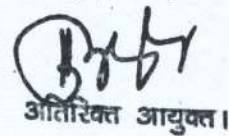 अतिरिक्त आयुक्त।